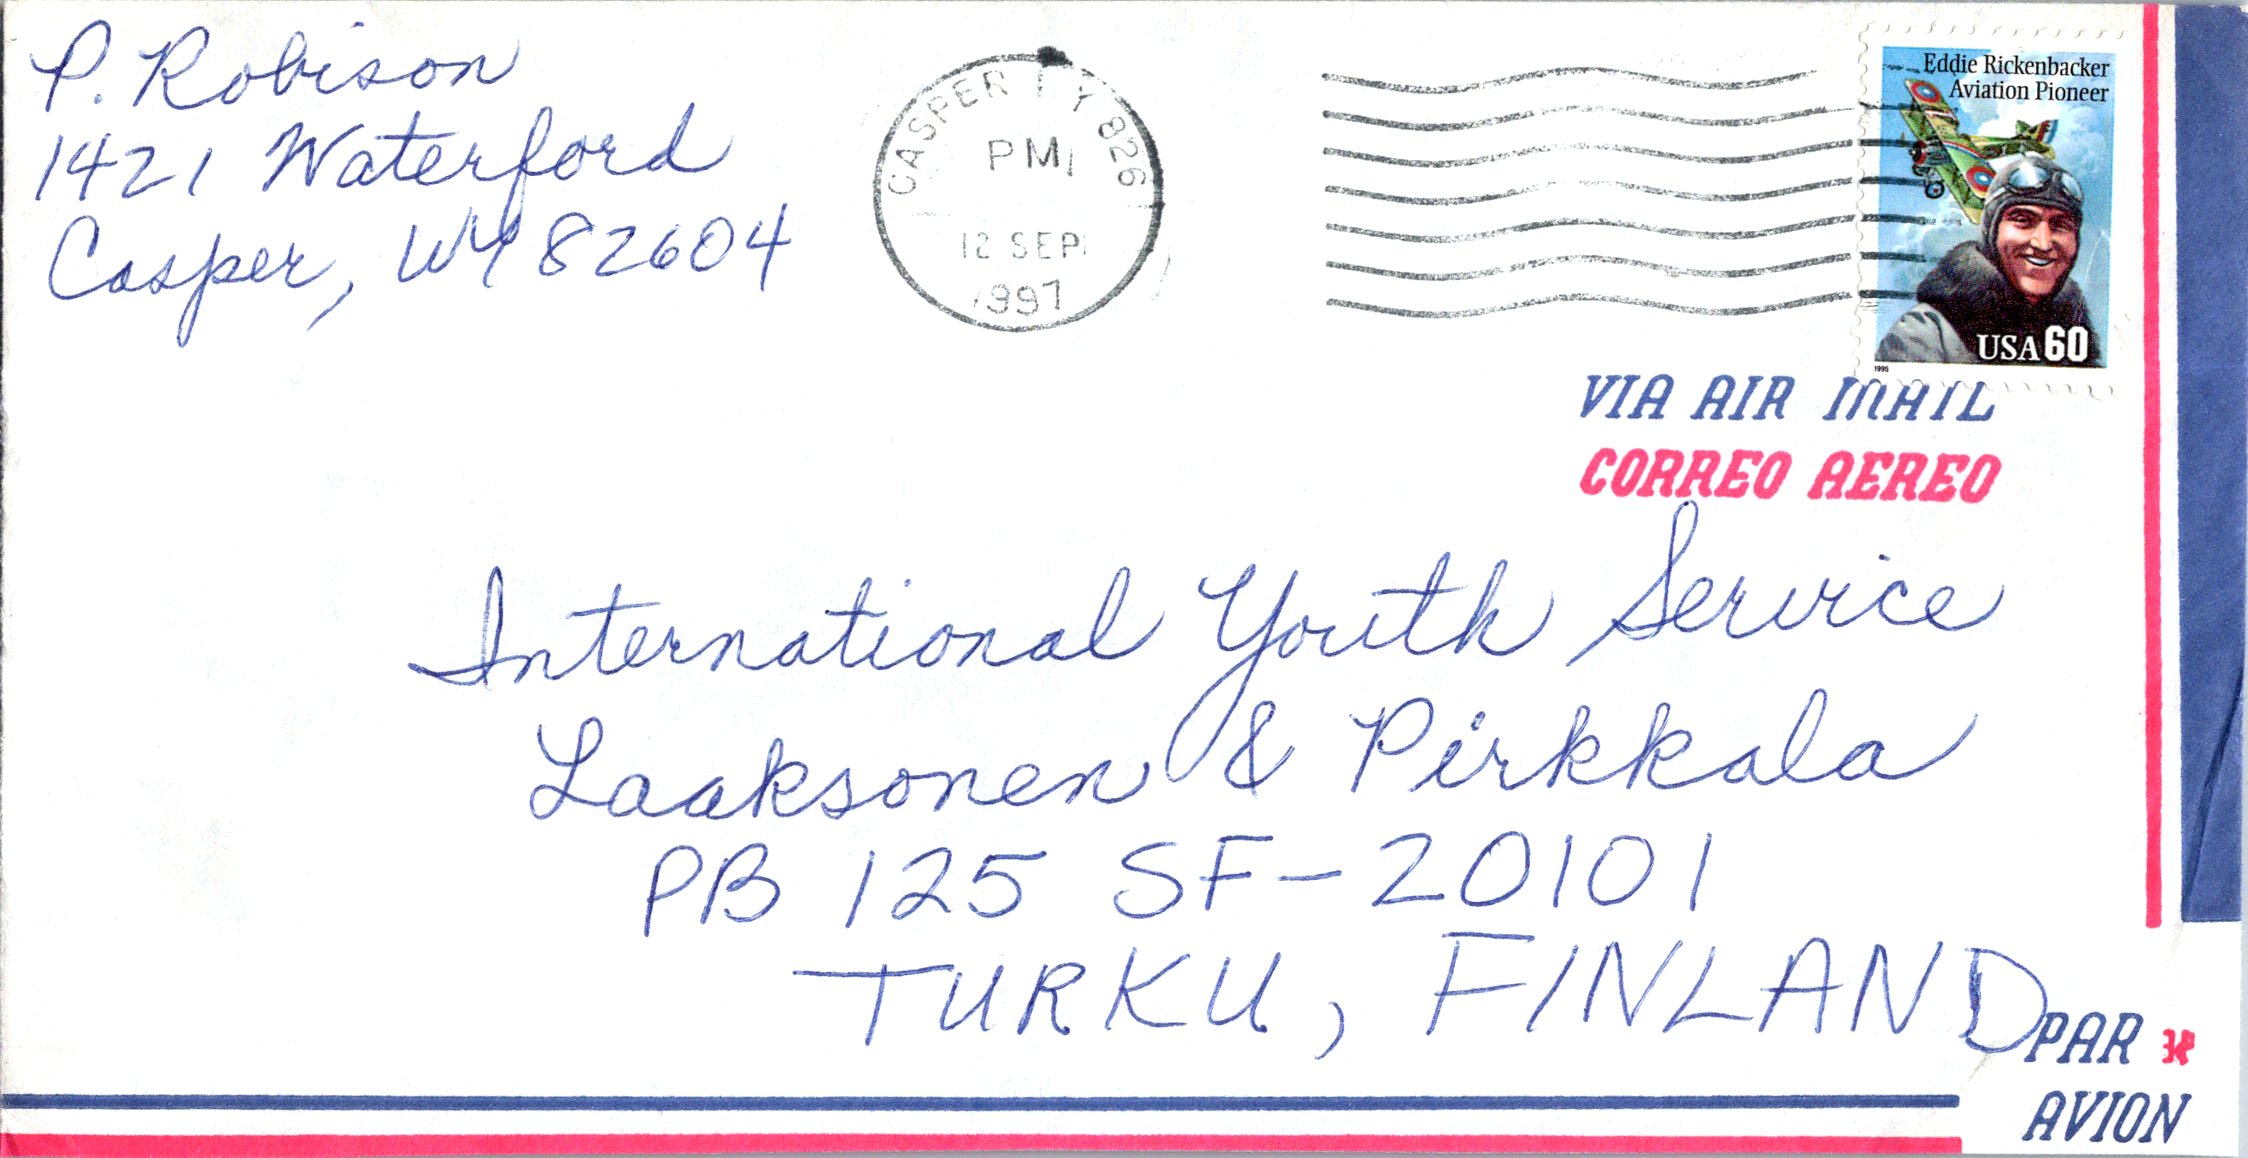 P. Robison
1421 Waterford
Casper, WY 82604
CASPER WY 826
PM
12 SEP
1997
Eddie Rickenbacker
Aviation Pioneer
USA 60
1995
VIA AIR MAIL
CORREO AEREO
International Youth Service
Laaksonen & Pirkkala
PB 125 SF-20101
TURKU, FINLAND
PAR
AVION